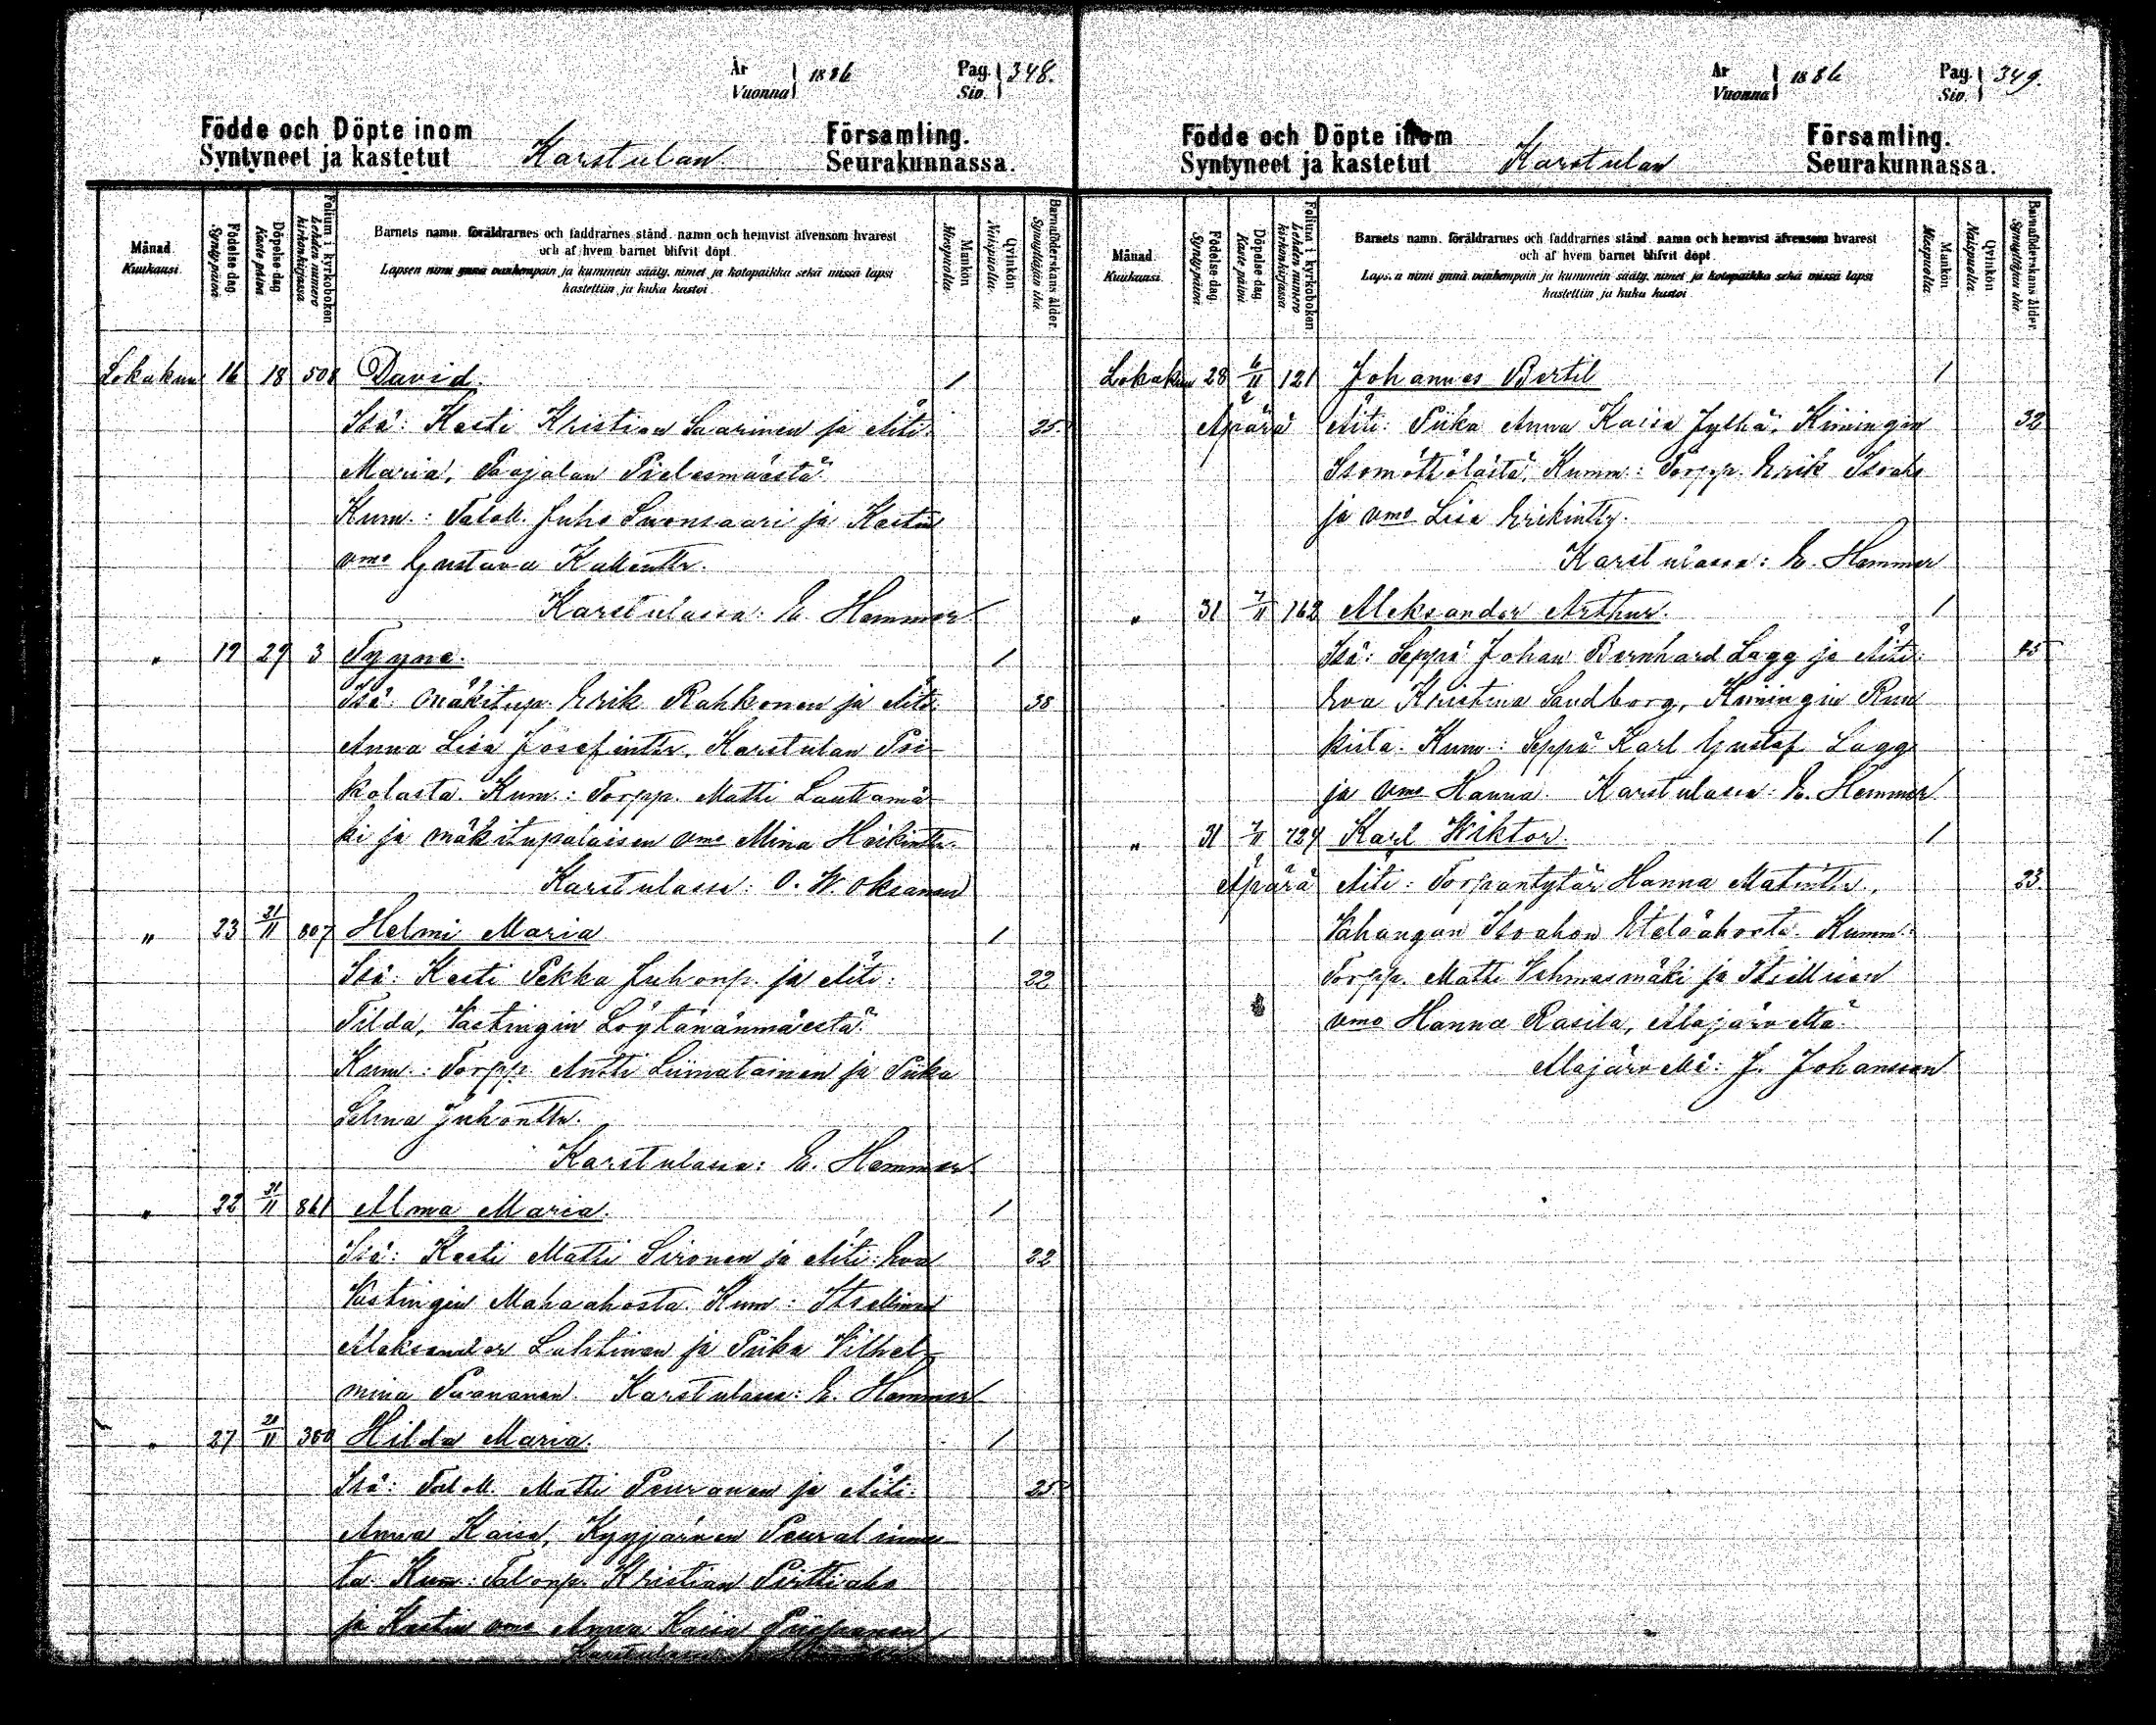 År
Vuonna 1886 Pag. Siv. 348.
Födde och Döpte inom Församling.
Syntyneet ja kastetut Karstulan Seurakunnassa.
Månad. Kuukausi.
Födelse dag. Synty päivä
Döpelse dag Kaste päivä
Folium i kyrkoboken Lehden numero kirkonkirjassa
Barnets namn, föräldrarnes och faddrarnes stånd, namn och hemvist äfvensom hvarest
och af hvem barnet blifvit döpt.
Lapsen nimi ynnä vanhempain ja kummein sääty, nimet ja kotopaikka sekä missä lapsi
kastettiin ja kuka kastoi.
Mankön Miespuolia.
Qvinkön Naispuolia.
Barnaföderskans ålder. Synnyttäjän ikä
Lokakuu 16 18 508 David. 1
Isä: Kesti Kristian Saarinen ja Äiti: 25.
Maria, Paajalan Pielesmäestä
Kum.: Talok. Juho Suonsaari ja Kestin
vmo Gustava Kallentr.
Karstulassa: E. Hammer
" 19 29 3 Tyyne. 1
Isä: Mäkitup. Erik Rahkonen ja Äiti: 38
Anna Lisa Josefintr. Karstulan Pii-
kolasta. Kum.: Torpp. Matti Lauttamä-
ki ja mäkitupalaisen vmo Mina Heikintr.
Karstulassa: O. W. Oksanen
" 23 21/11 807 Helmi Maria 1
Isä: Kesti Pekka Juhonp. ja Äiti: 22
Tilda, Vastingin Löytänänmäestä
Kum.: Torpp. Antti Liimatainen ja Piika
Selma Juhontr.
Karstulassa: E. Hammer
" 22 21/11 861 Alma Maria. 1
Isä: Kesti Matti Sironen ja Äiti: Eva 22
Vastingin Mahaahosta. Kum: Itsellinen
Aleksander Lahtinen ja Piika Vilhel-
mina Paananen. Karstulassa: E. Hammer
" 27 21/11 300 Hilda Maria. 1
Isä: Talok. Matti Peuranen ja Äiti: 25
Anna Kaisa, Kyyjärven Peuralinnas-
ta. Kum: Talonp. Kristian Pirttiaho
ja Kestin vmo Anna Kaisa Piispanen
Karstulassa
År
Vuonna 1886 Pag. Siv. 349.
Födde och Döpte inom Församling.
Syntyneet ja kastetut Karstulan Seurakunnassa.
Månad. Kuukausi.
Födelse dag. Synty päivä
Döpelse dag Kaste päivä
Folium i kyrkoboken Lehden numero kirkonkirjassa
Barnets namn, föräldrarnes och faddrarnes stånd, namn och hemvist äfvensom hvarest
och af hvem barnet blifvit döpt.
Lapsen nimi ynnä vanhempain ja kummein sääty, nimet ja kotopaikka sekä missä lapsi
kastettiin ja kuka kastoi.
Mankön Miespuolia.
Qvinkön Naispuolia.
Barnaföderskans ålder. Synnyttäjän ikä
Lokakuu 28 6/11 121 Johannes Bertil 1
Äpärä Äiti: Piika Anna Kaisa Jylhä, Kiimingin 32
Isomöttöläitä. Kumm.: Torpp. Erik Isoaho
ja vmo Lisa Erikintr.
Karstulassa: E. Hammer
" 31 7/11 162 Aleksander Arthur. 1
Isä: Seppä Johan Bernhard Lagg ja Äiti: 45
Eva Kristina Sandborg, Kiimingin Run
kista. Kum.: Seppä Karl Gustaf Lagg
ja vmo Hanna. Karstulassa: E. Hammer
" 31 7/11 727 Karl Wiktor. 1
Äpärä Äiti: Torpantytär Hanna Matintr., 23.
Vahangan Isoahon Eteläahosta. Kumm.:
Torpp. Matti Vehmasmäki ja Itsellisen
vmo Hanna Rasila, Alajärveltä.
Alajärvellä: J. Johansson